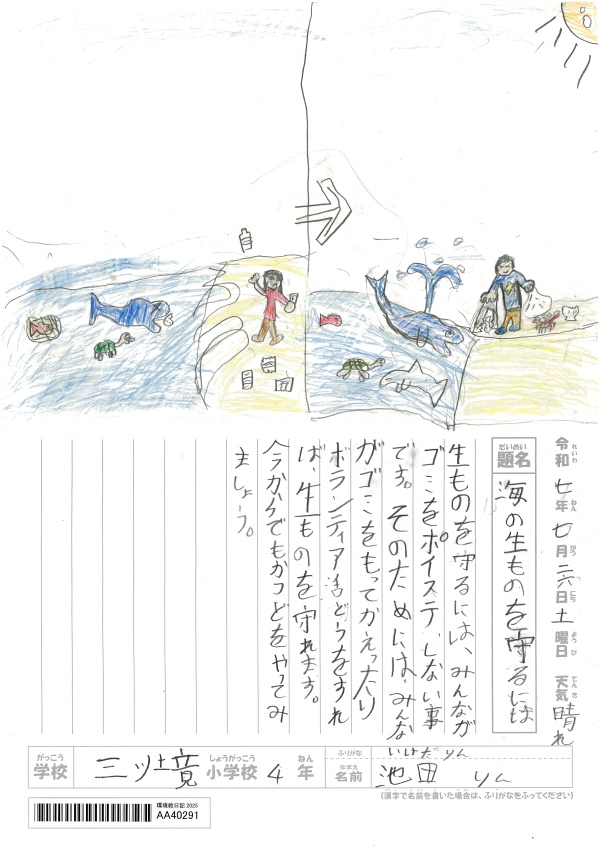 令和七年七月二六日土曜日 天気晴れ
れいわ ねん がつ にち ようび てんき
だいめい
題名 海の生ものを守るには
生ものを守るには、みんなが
ゴミをポイステしない事
です。そのためにはみんな
がゴミをもってかえったり
ボランティア活どうをすれ
ば、生ものを守れます。
今からでもかつどをやってみ
ましょう。
がっこう しょうがっこう ねん ふりがな いけだ りん
学校 三ツ境 小学校 4年 なまえ 名前 池田 りん
(漢字で名前を書いた場合は、ふりがなをふってください)
環境絵日記 2025
AA40291